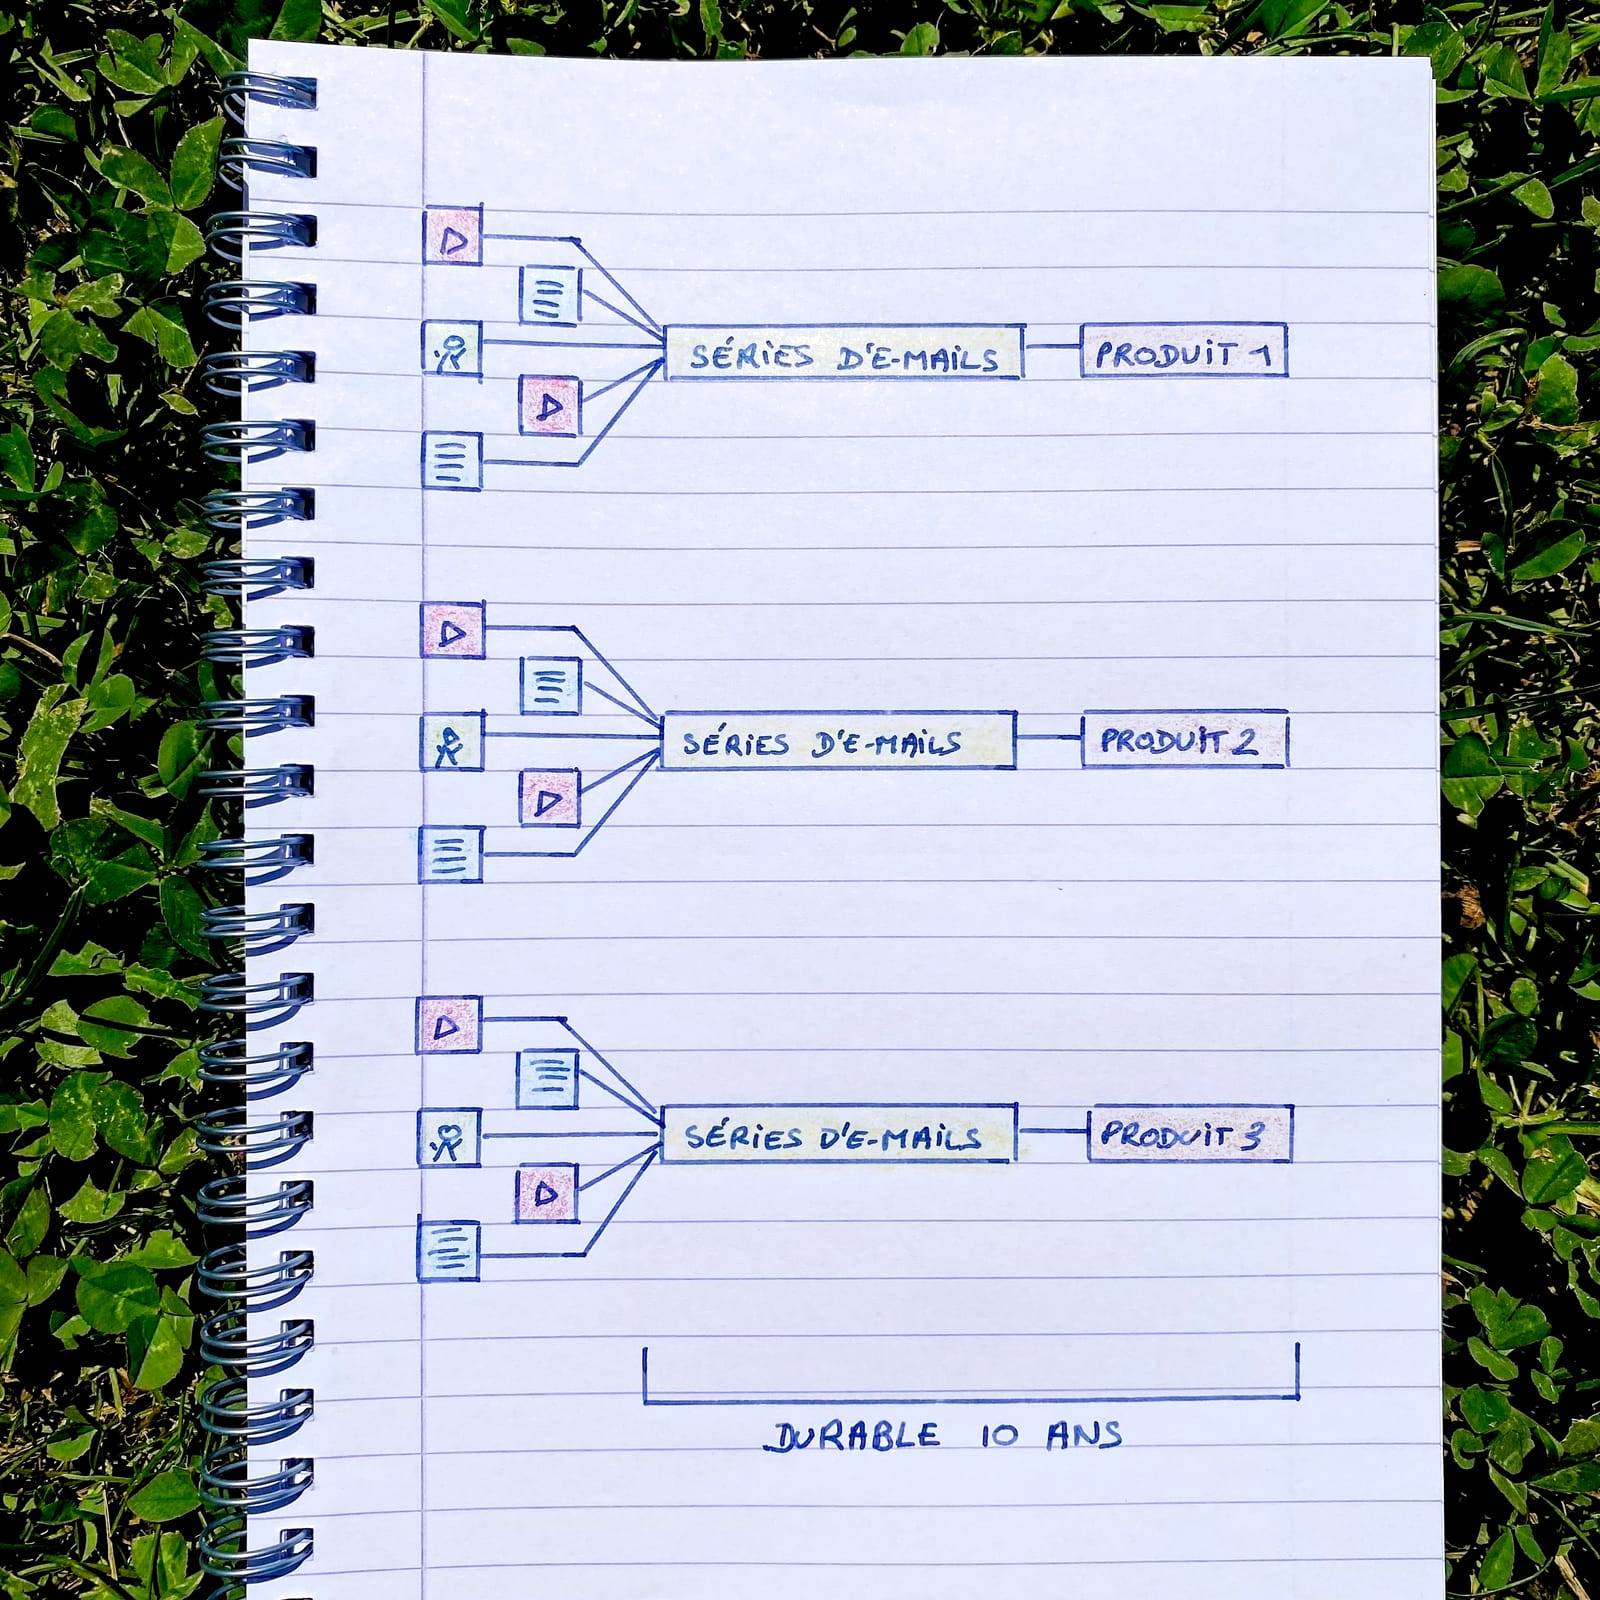 SÉRIES D'E-MAILS
PRODUIT 1
SÉRIES D'E-MAILS
PRODUIT 2
SÉRIES D'E-MAILS
PRODUIT 3
DURABLE 10 ANS